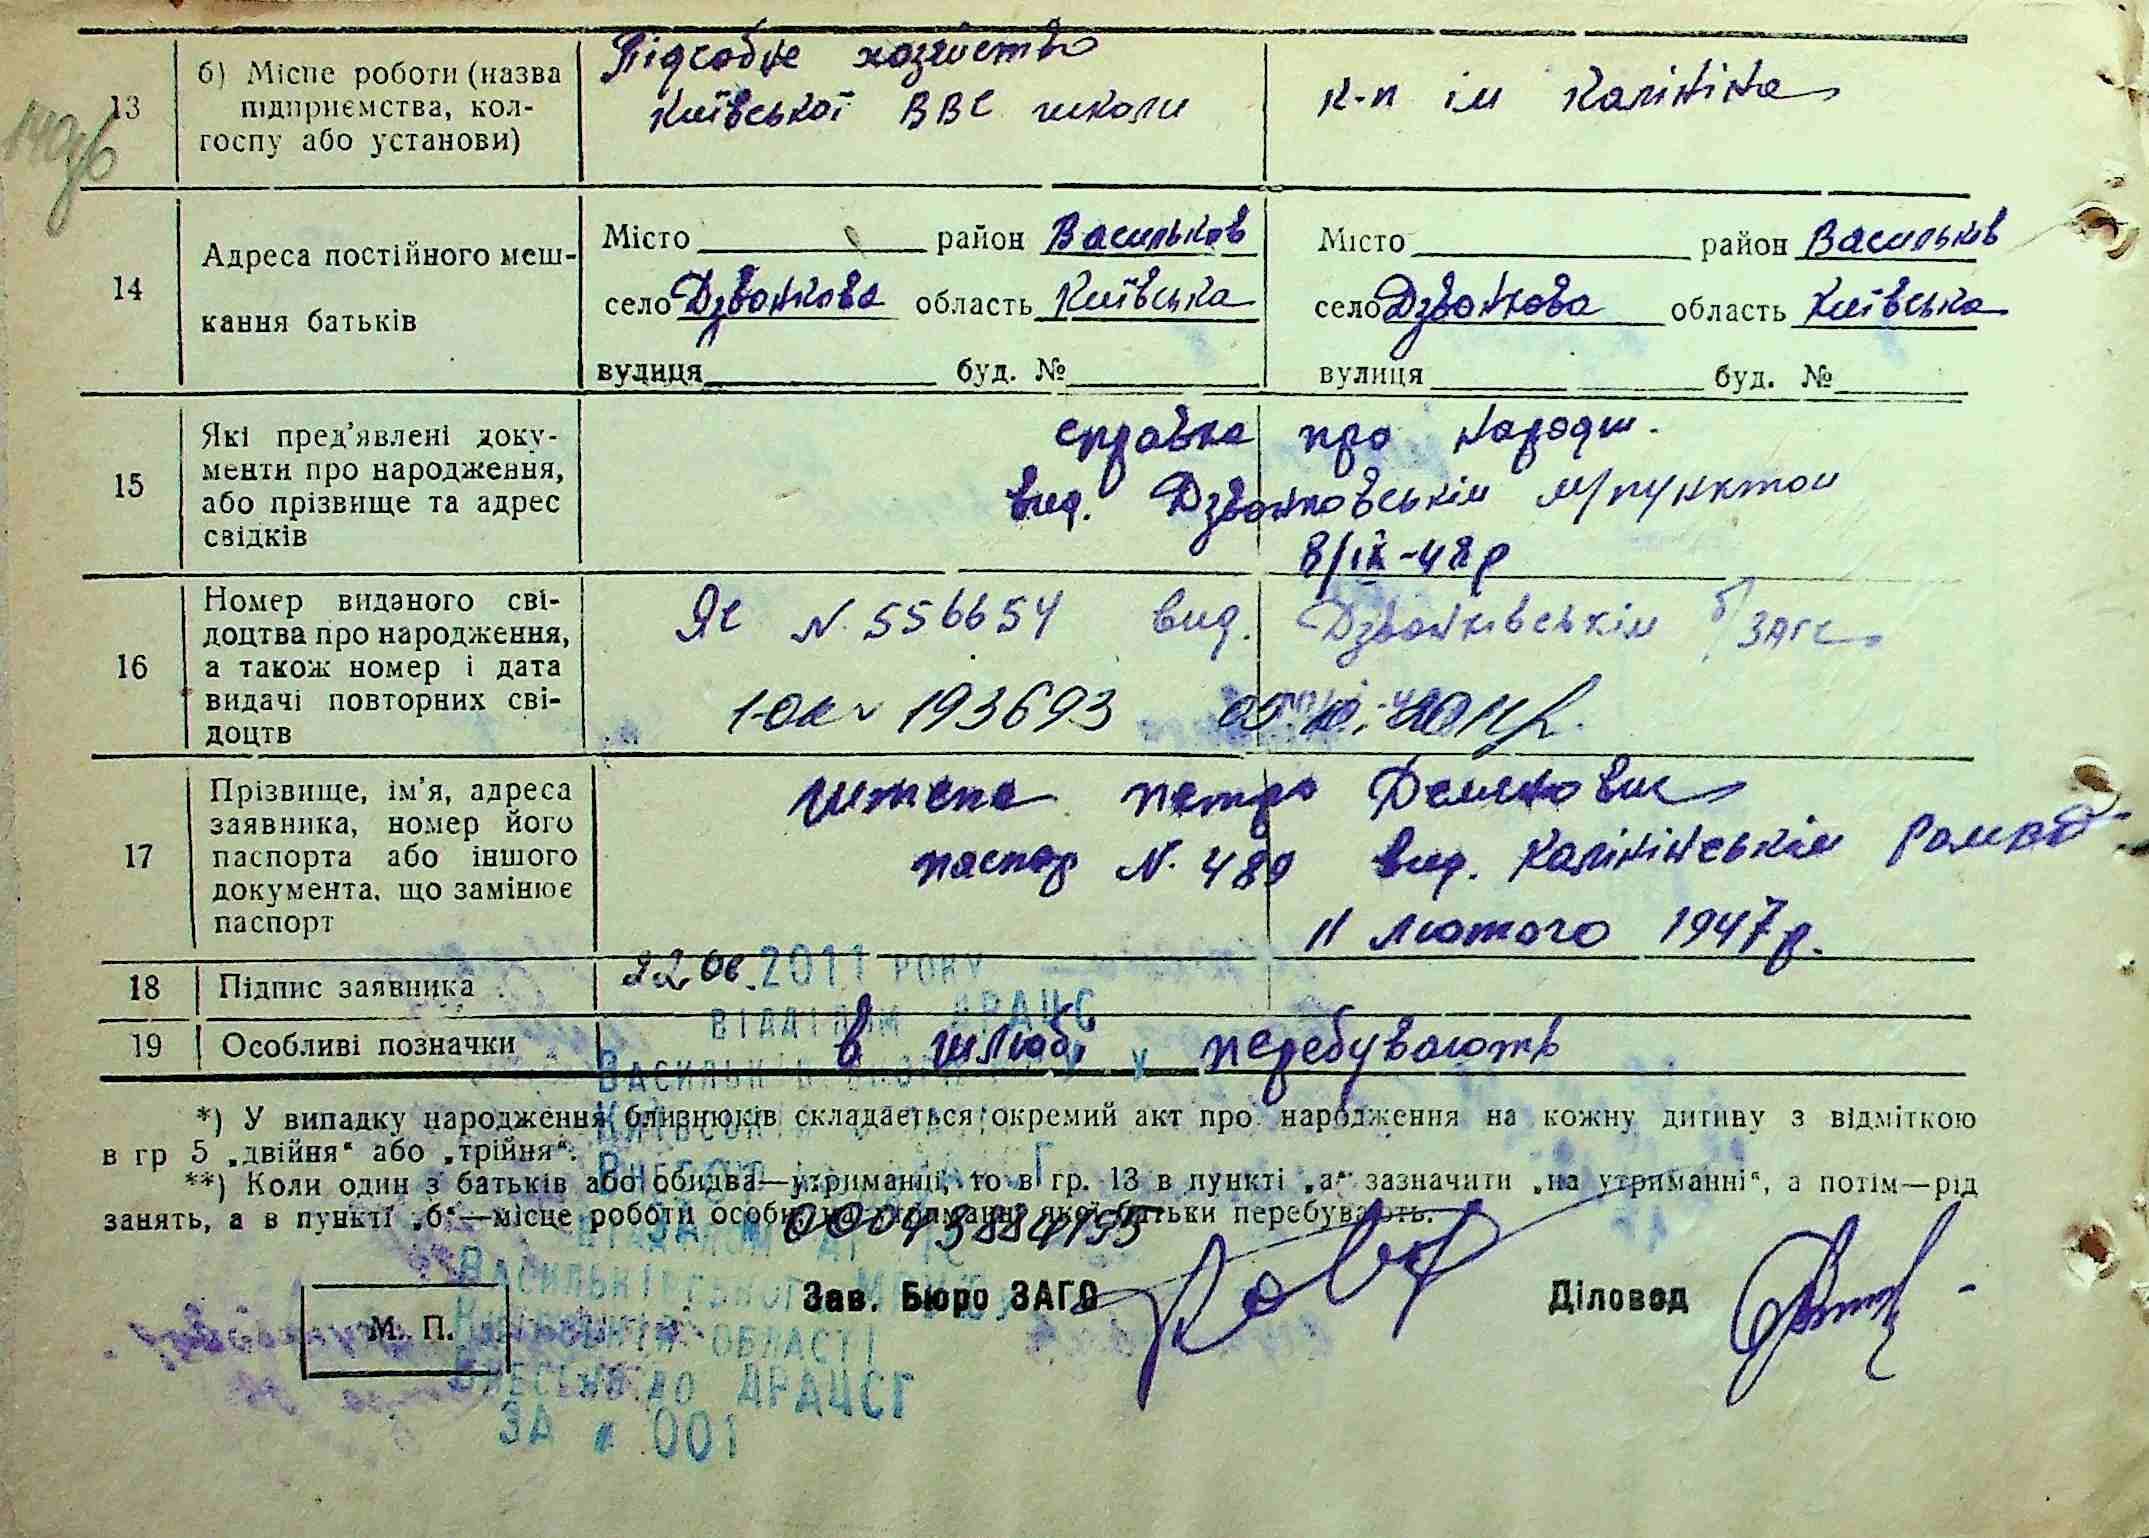 13
б) Місце роботи (назва
підприємства, кол-
госпу або установи)
Підсобне хозяйство
Київської ВВС школи
к-п ім Калініна
14
Адреса постійного меш-
кання батьків
Місто район Васильков
село Дзвонкова область Київська
вулиця буд. №
Місто район Васильків
село Дзвонкова область Київська
вулиця буд. №
15
Які пред’явлені доку-
менти про народження,
або прізвище та адрес
свідків
справка про народж.
вид. Дзвонковськім м/пунктом
8/ІХ-48р
16
Номер виданого сві-
доцтва про народження,
а також номер і дата
видачі повторних сві-
доцтв
ЯС N. 556654 вид. Дзвонківськім б/ЗАГС
193693
17
Прізвище, ім’я, адреса
заявника, номер його
паспорта або іншого
документа, що замінює
паспорт
Петро Демянович
паспор N. 489 вид. Калінінськім
11 лютого 1947р.
18
Підпис заявника
22.06.2011 РОКУ
ВІДДІЛОМ ДРАЦС
19
Особливі позначки
в шлюбі перебувають
*) У випадку народження близнюків складається окремий акт про народження на кожну дитину з відміткою
в гр 5 „двійня“ або „трійня“.
**) Коли один з батьків або обидва—утриманці, то в гр. 13 в пункті „а“ зазначити „на утриманні“, а потім—рід
занять, а в пункті „б“—місце роботи особи, на утриманні якої батьки перебувають.
00043884195
ВАСИЛЬКІВСЬКОГО
ОБЛАСТІ
ВНЕСЕНО ДО ДРАЦСГ
ЗА № 001
М. П.
Зав. Бюро ЗАГС
Діловод